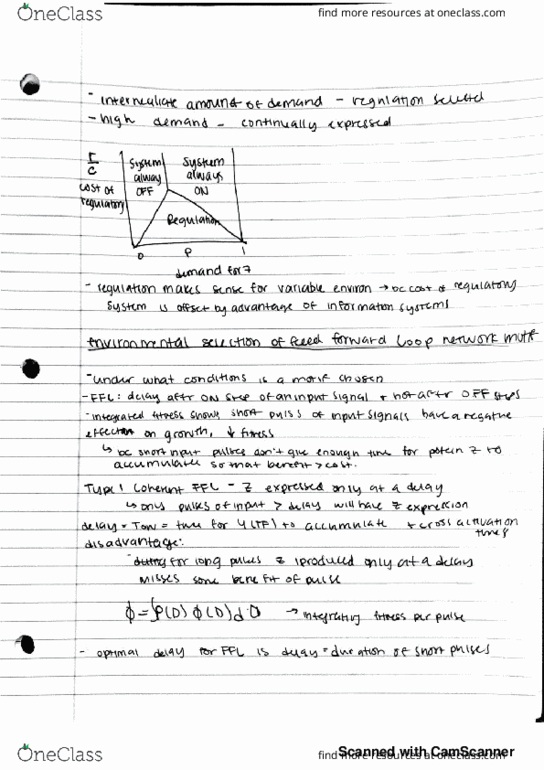 OneClass
find more resources at oneclass.com
- intermediate amount of demand - regulation selected
- high demand - continually expressed
r/c
cost of regulatory
System always OFF
System always ON
Regulation
0 P 1
demand for Z
- regulation makes sense for variable environ → bc cost of regulatory
system is offset by advantage of information systems
environmental selection of feed forward loop network motif
- under what conditions is a motif chosen
- FFL: delay after ON step of an input signal + not after OFF steps
- integrated fitness shows short pulses of input signals have a negative
effect on growth, ↓ fitness
↳ bc short input pulses don't give enough time for protein Z to
accumulate so that benefit > cost.
Type 1 Coherent FFL - Z expressed only at a delay
↳ only pulses of input > delay will have Z expression
delay = Ton = time for Y (TF) to accumulate + cross activation
disadvantage:
- for long pulses Z produced only at a delay
misses some benefit of pulse
ϕ = ∫P(D) ϕ(D) dD → integrating fitness per pulse
- optimal delay for FFL is delay = duration of short pulses
OneClass
find more resources at oneclass.com
Scanned with CamScanner